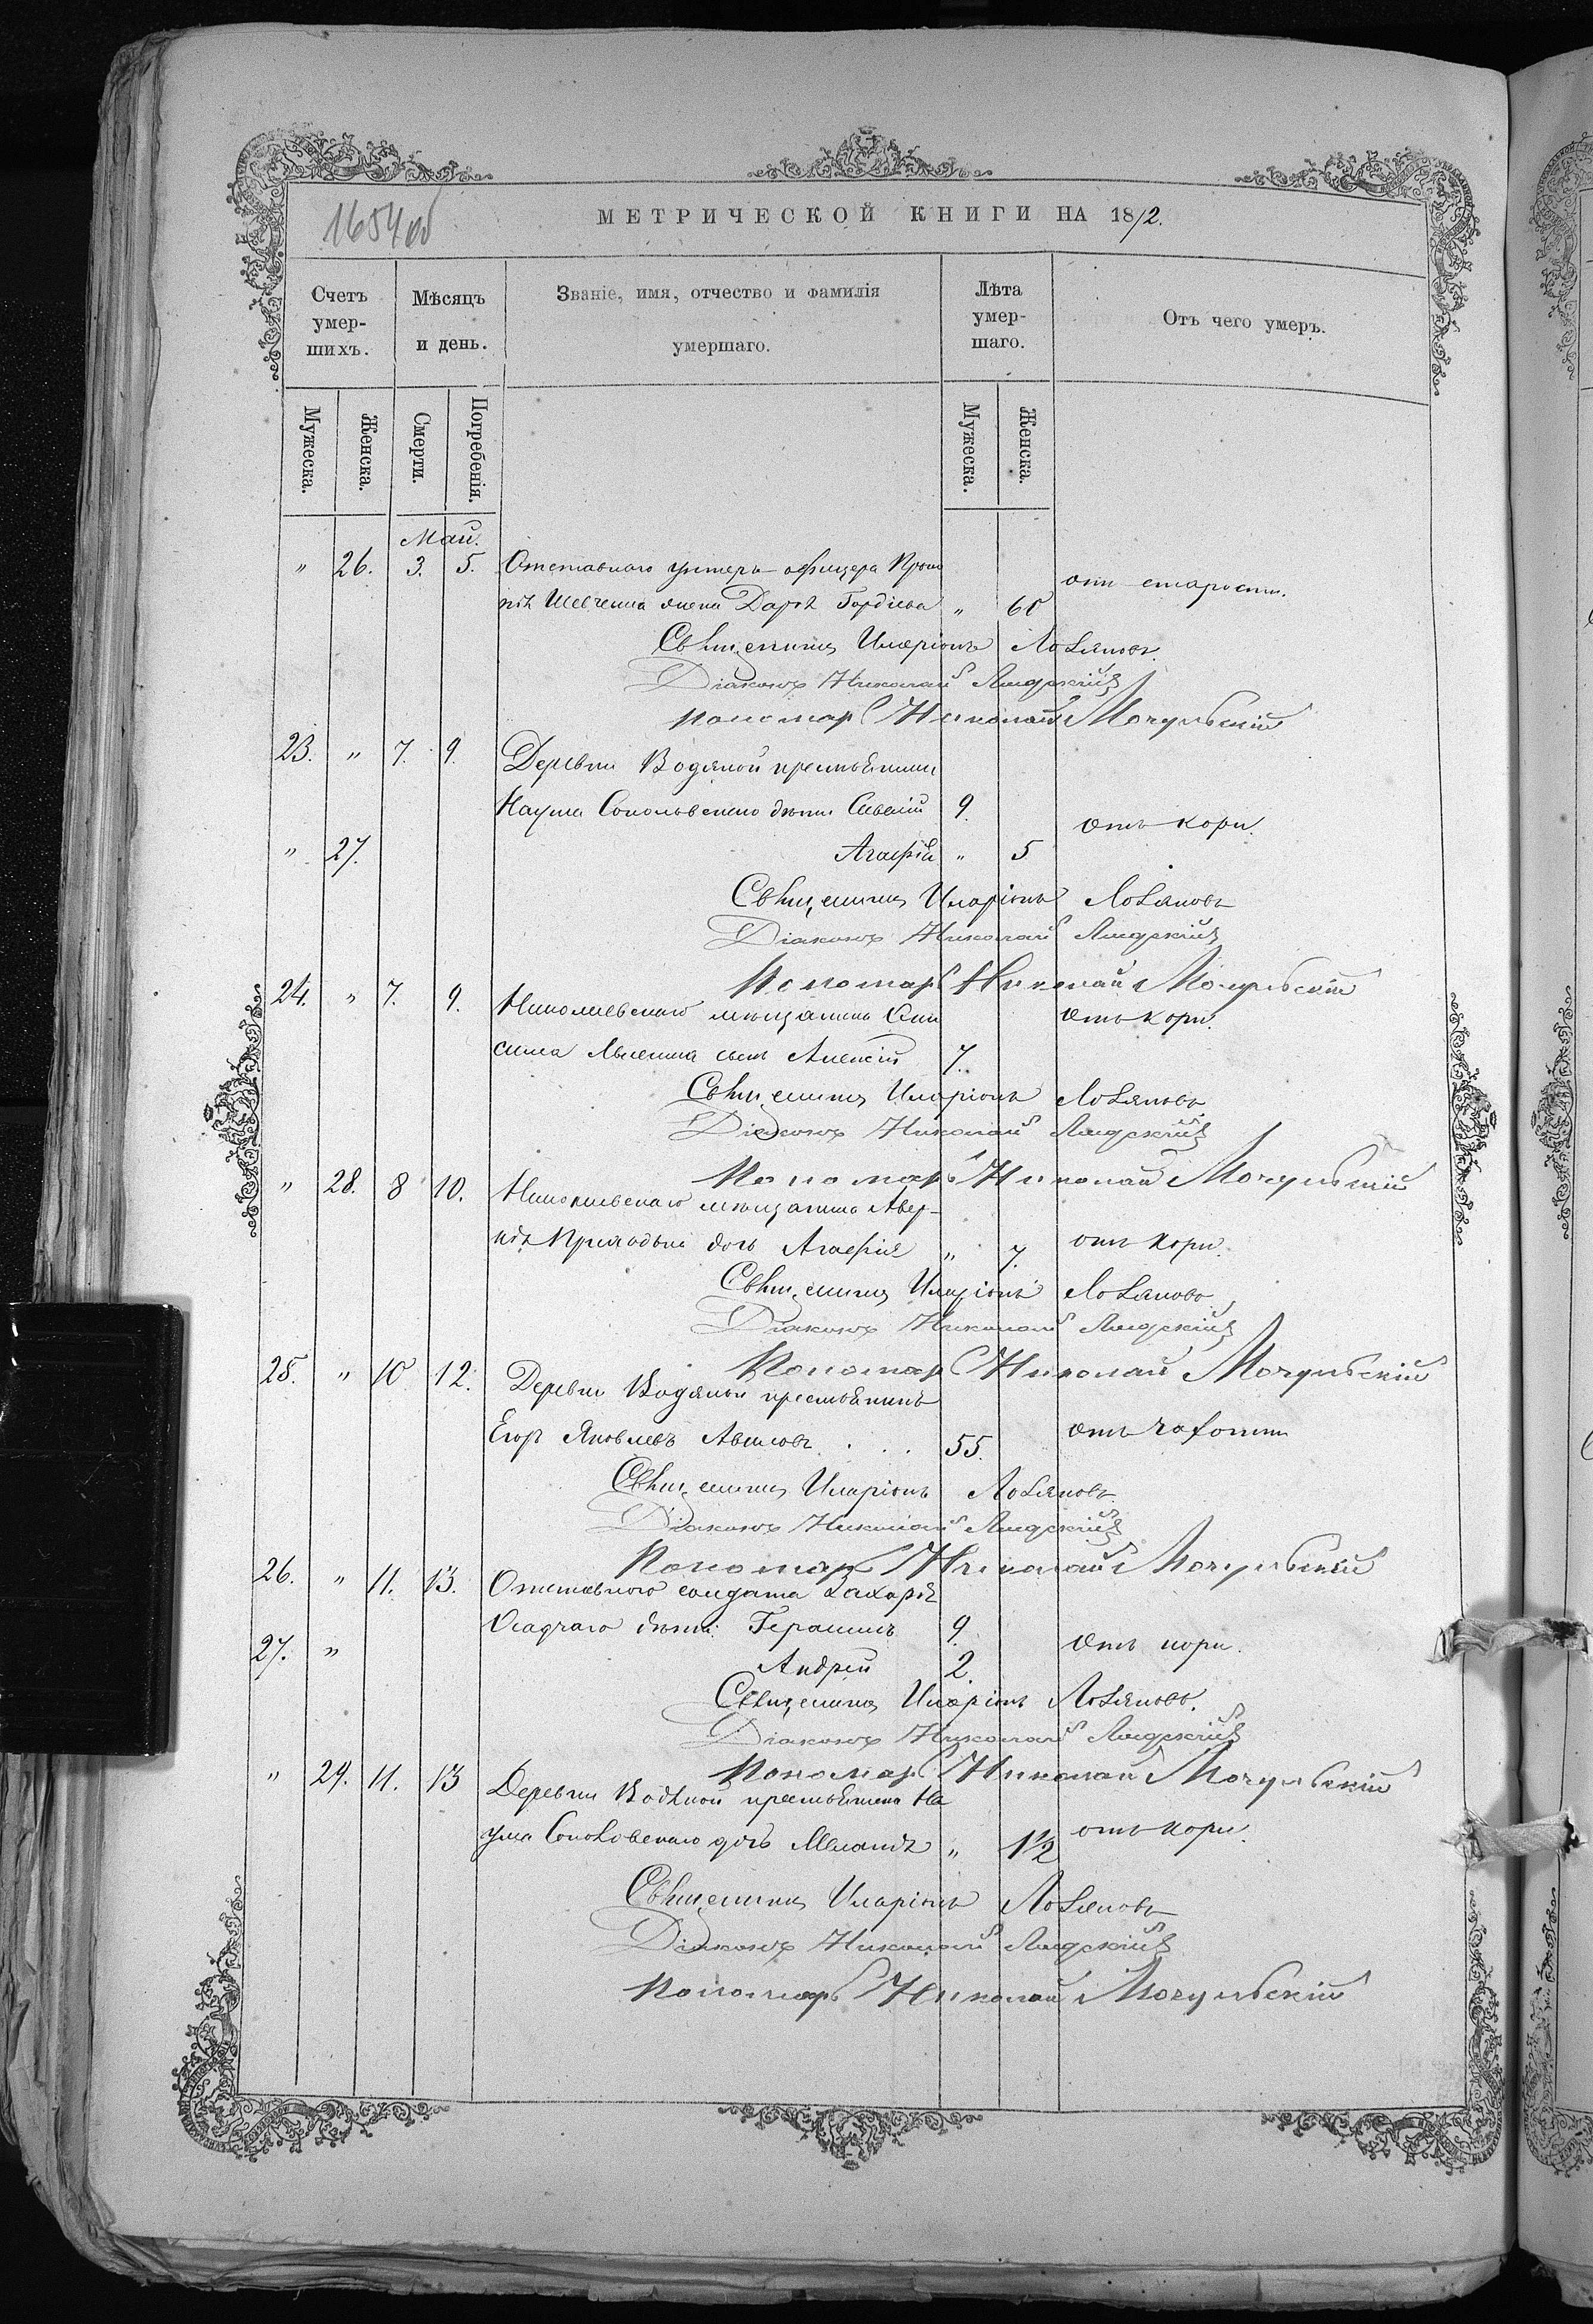 1654 об
МЕТРИЧЕСКОЙ КНИГИ НА 1872.
Счетъ умер-шихъ.
Мѣсяцъ и день.
Званіе, имя, отчество и фамилія умершаго.
Лѣта умер-шаго.
Отъ чего умеръ.
Мужеска.
Женска.
Смерти.
Погребенія.
Мужеска.
Женска.
Май.
" 26. 3. 5. Отставнаго унтеръ-офицера
Шевченка жена Дарья Гордіева " 60 отъ старости.
Священникъ Иларіонъ Лобановъ
Діаконъ Николай
Пономарь Николай Мочульскій
23. " 7. 9. Деревни Водяной крестьянина
Наума Сокольвскаго дѣти Савелій 9. отъ кори.
" 27. Агафія " 5
Священникъ Иларіонъ Лобановъ
Діаконъ Николай
Пономарь Николай Мочульскій
24. " 7. 9. Николаевскаго мѣщанина Они
сима сынъ Алексій 7. отъ кори.
Священникъ Иларіонъ Лобановъ
Діаконъ Николай
Пономарь Николай Мочульскій
" 28. 8 10. Николаевскаго мѣщанина Авер-
дочь Агафія " 7. отъ кори.
Священникъ Иларіонъ Лобановъ
Діаконъ Николай
Пономарь Николай Мочульскій
25. " 10 12. Деревни Водяной крестьянинъ
Егоръ Яковлевъ . . . 55. отъ чахотки
Священникъ Иларіонъ Лобановъ
Діаконъ Николай
Пономарь Николай Мочульскій
26. " 11. 13. Отставного солдата Захарія
Осадчаго дѣти: Герасимъ 9. отъ кори.
27. " Андрей 2.
Священникъ Иларіонъ Лобановъ.
Діаконъ Николай
Пономарь Николай Мочульскій
" 29. 11. 13 Деревни Водяной крестьянина На
ума дочь Меланія " 1½ отъ кори.
Священникъ Иларіонъ Лобановъ
Діаконъ Николай
Пономарь Николай Мочульскій